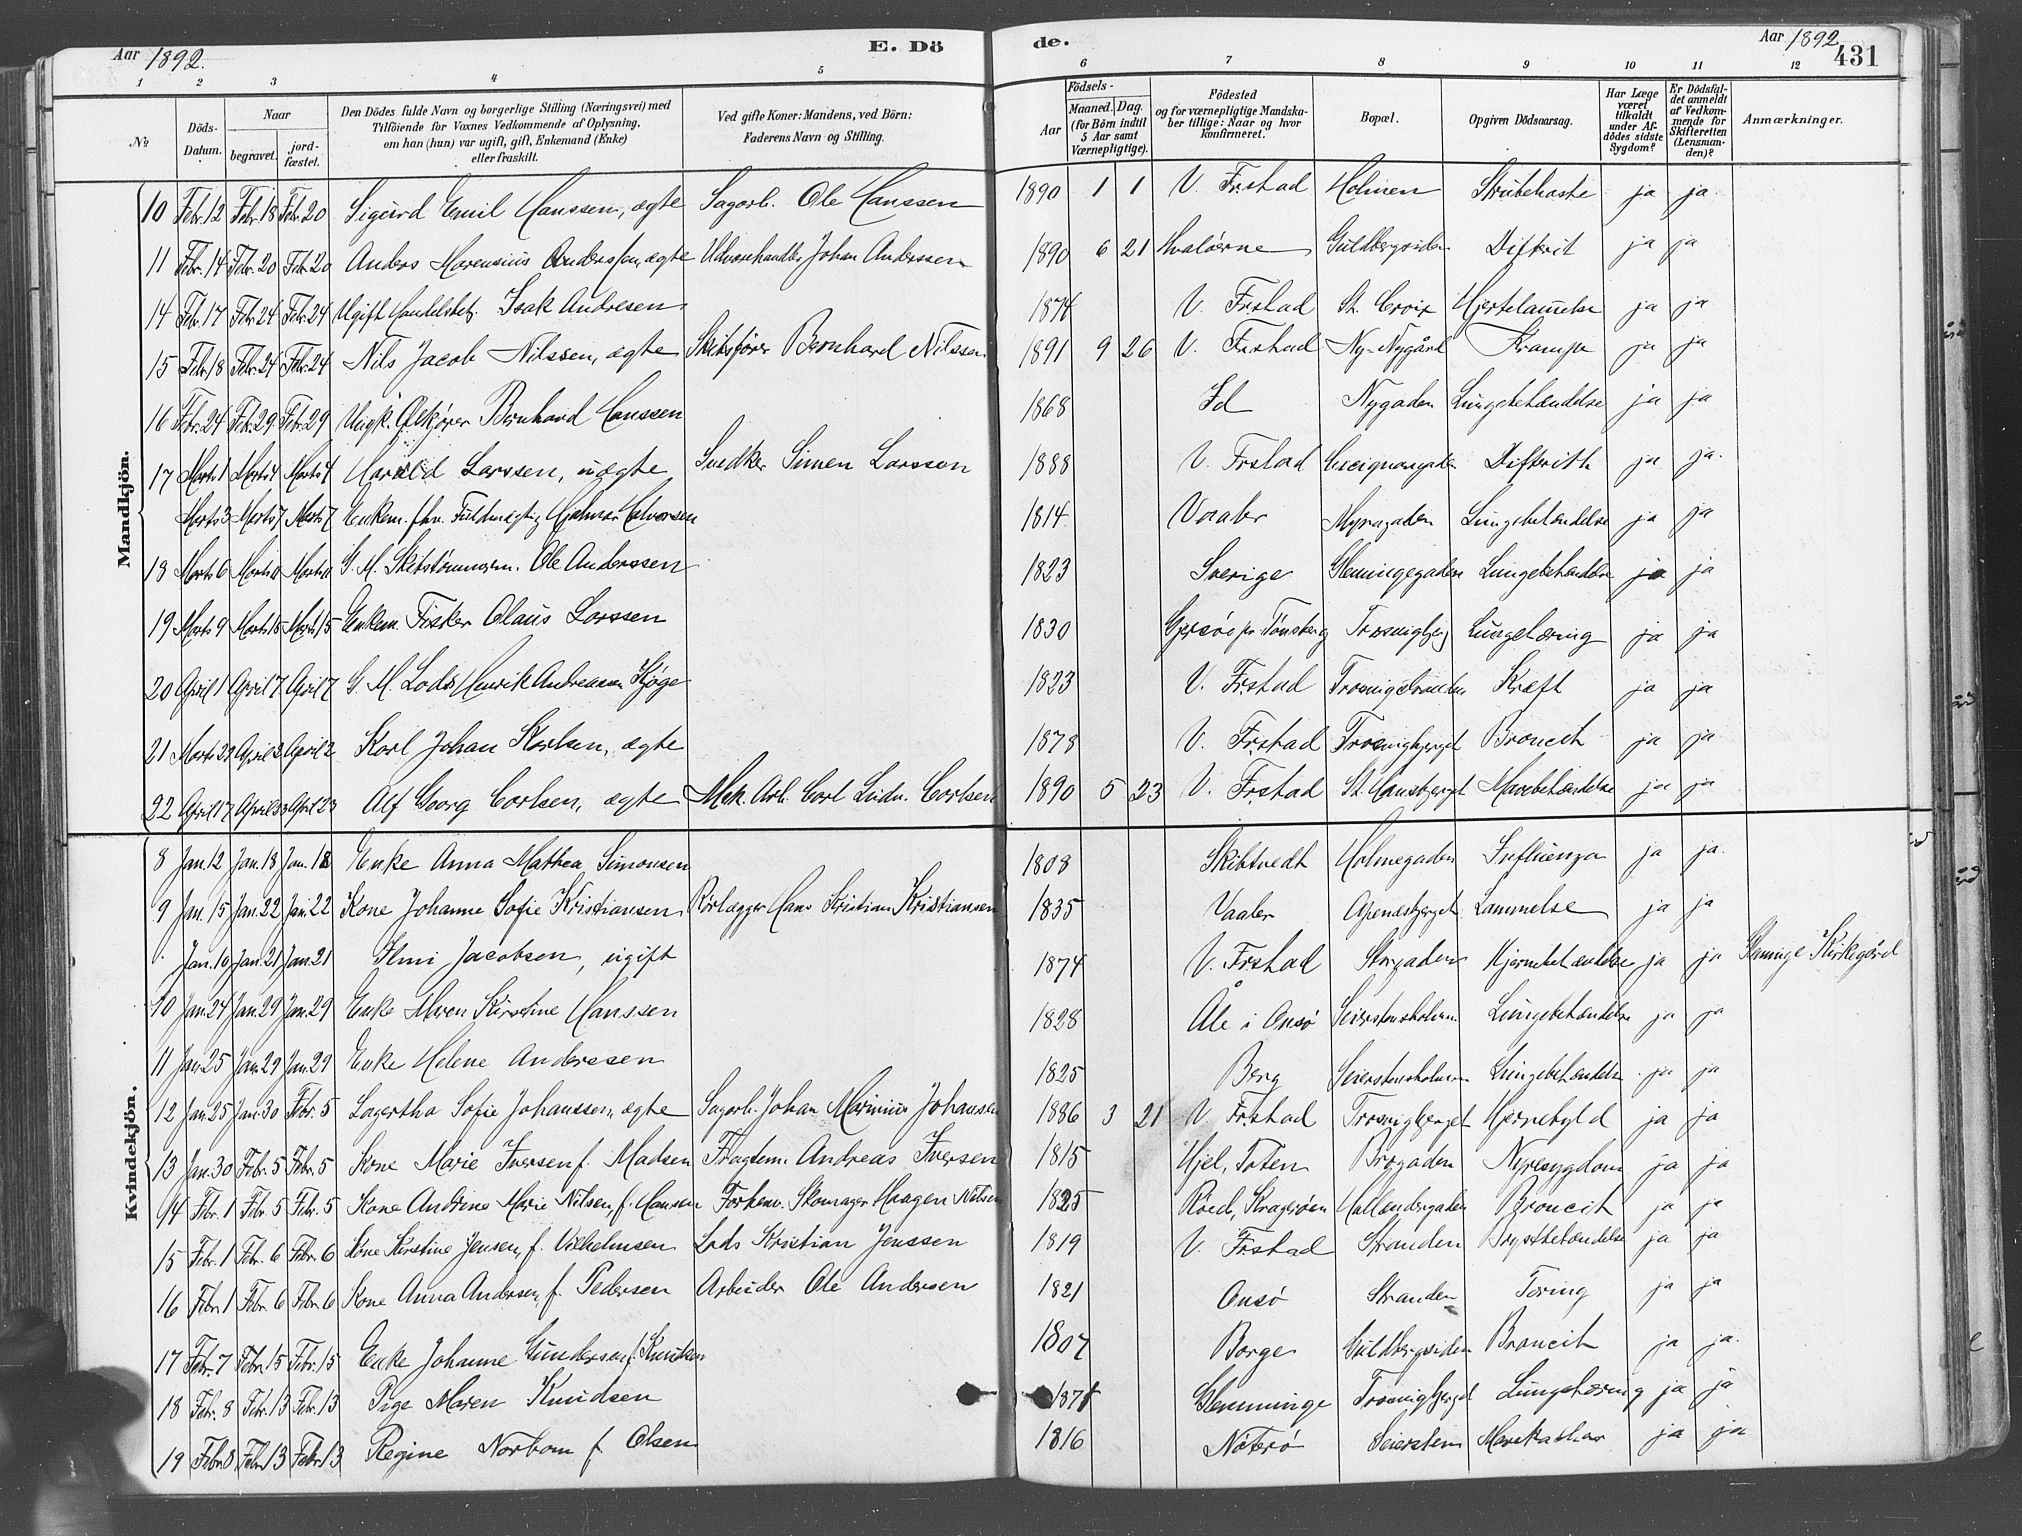 Aar 1892. E. Dö de. Aar 1892 431
1 2 3 4 5 6 7 8 9 10 11 12
№ Döds-Datum. Naar begravet. jordfæstet. Den Dödes fulde Navn og borgerlige Stilling (Næringsvei) med Tilföiende for Voxnes Vedkommende af Oplysning, om han (hun) var ugift, gift, Enkemand (Enke) eller fraskilt. Ved gifte Koner: Mandens, ved Börn: Faderens Navn og Stilling. Aar Födsels- Maaned. Dag. (for Börn indtil 5 Aar samt Værnepligtige). Födested og for værnepligtige Mandskaber tillige: Naar og hvor konfirmeret. Bopæl. Opgiven Dödsaarsag. Har Læge været tilkaldt under Afdödes sidste Sygdom? Er Dödsfaldet anmeldt af Vedkommende for Skifteretten (Lensmanden)? Anmærkninger.
Mandkjön.
10 Febr. 12 Febr. 18 Febr. 20 Sigurd Emil Hanssen, ægte Sagarb. Ole Hanssen 1890 1 1 V. Frstad Holmen Strubehoste ja ja
11 Febr. 14 Febr. 20 Febr. 20 Anders Marensius Anderssen, ægte Udvarehandler Johan Anderssen 1890 6 21 Hvaløerne Guldbergsiden Difterit ja ja
14 Febr. 17 Febr. 24 Febr. 24 Ugift Handelsbet. Isak Andresen 1874 V. Frstad St. Croix Hjertelammelse ja ja
15 Febr. 18 Febr. 24 Febr. 24 Nils Jacob Nilssen, ægte Skibsfører Bernhard Nilssen 1891 9 26 V. Frstad Ny-Nygård Krampe ja ja
16 Febr. 24 Febr. 29 Febr. 29 Ungk. Ølkjører Bernhard Hanssen 1868 Id Nygaden Lungebetændelse ja ja
17 Marts 1 Marts 4 Marts 4 Harald Larssen, uægte Snedker Simen Larssen 1888 V. Frstad Difterith ja ja.
Marts 3 Marts 7 Marts 7 Enkem. fhv. Fuldmægtig Hjalmar Halvorsen 1814 Vaaler Myragaden Lungebetændelse ja ja
18 Marts 6 Marts 11 Marts 11 G. M. Skibstømmerm. Ole Anderssen 1823 Sverige Glemmingegaden Lungebetændelse ja ja
19 Marts 9 Marts 15 Marts 15 Enkem. Fisker Olaus Larssen 1830 pr. Tønsberg Trosvigbjerg Lungetæring ja ja
20 April 1 April 7 April 7 G. M. Lods Henrik Andreassen Kjøge 1823 V. Frstad Kræft ja ja
21 Marts 29 April 2 April 2 Karl Johan Karlsen, ægte 1878 V. Frstad Trosvigbjerget Broncit ja ja
22 April 17 April 23 April 23 Alf Georg Carlsen, ægte Mek. Arb. Carl Ludv. Carlsen 1890 5 23 V. Frstad St. Hansbjerget Mavebetændelse ja ja
Kvindekjön.
8 Jan. 12 Jan. 18 Jan. 18 Enke Anna Mathea Simonsen 1808 Skibtvedt Holmegaden Influenza ja ja.
9 Jan. 15 Jan. 22 Jan. 22 Kone Johanne Sofie Kristiansen Rørlægger Hans Kristian Kristiansen 1835 Vaaler Apenæsbjerget Lammelse ja ja
Jan. 10 Jan. 21 Jan. 21 Elmi Jacobsen, ugift 1874 V. Frstad Storgaden Hjernebetændelse ja ja Glemminge Kirkegård
10 Jan. 24 Jan. 29 Jan. 29 Enke Maren Kirstine Hanssen 1828 Åle i Onsø Seierstensholmen Lungebetændelse ja ja
11 Jan. 25 Jan. 29 Jan. 29 Enke Helene Anderssen 1825 Berg Seierstensholmen Lungebetændelse ja ja
12 Jan. 25 Jan. 30 Febr. 5 Lagertha Sofie Johanssen, ægte Sagarb. Johan Marinius Johansen 1886 3 21 V. Frstad Trosvigbjerget Hjernebyld ja ja
13 Jan. 30 Febr. 5 Febr. 5 Kone Marie Iversen f. Madsen Fragtem. Andreas Iversen 1815 Hjel, Toten Brogaden Nyresygdom ja ja
14 Febr. 1 Febr. 5 Febr. 5 Kone Andrine Marie Nilsen, f. Hansen Forhenv. Skomager Haagen Nilsen 1825 Røed, Kragerøen Hollendergaden Broncit ja ja
15 Febr. 1 Febr. 6 Febr. 6 Kone Kirstine Jensen, f. Vilhelmsen Lods Kristian Jenssen 1819 V. Frstad Stranden Brystbetændelse ja ja
16 Febr. 1 Febr. 6 Febr. 6 Kone Anna Andersen, f. Pedersen Arbeider Ole Andersen 1821 Onsø Stranden Tæring ja ja
17 Febr. 7 Febr. 15 Febr. 15 Enke Johanne Gundersen f. Knudsen 1807 Borge Guldbergsiden Broncit ja ja.
18 Febr. 8 Febr. 13 Febr. 13 Pige Maren Knudsen 1871 Glemminge Trosvigbjerget Lungetæring ja ja
19 Febr. 8 Febr. 13 Febr. 13 Regine Norbom f. Olsen 1816 Nøterø Seiersten Mavekathar ja ja